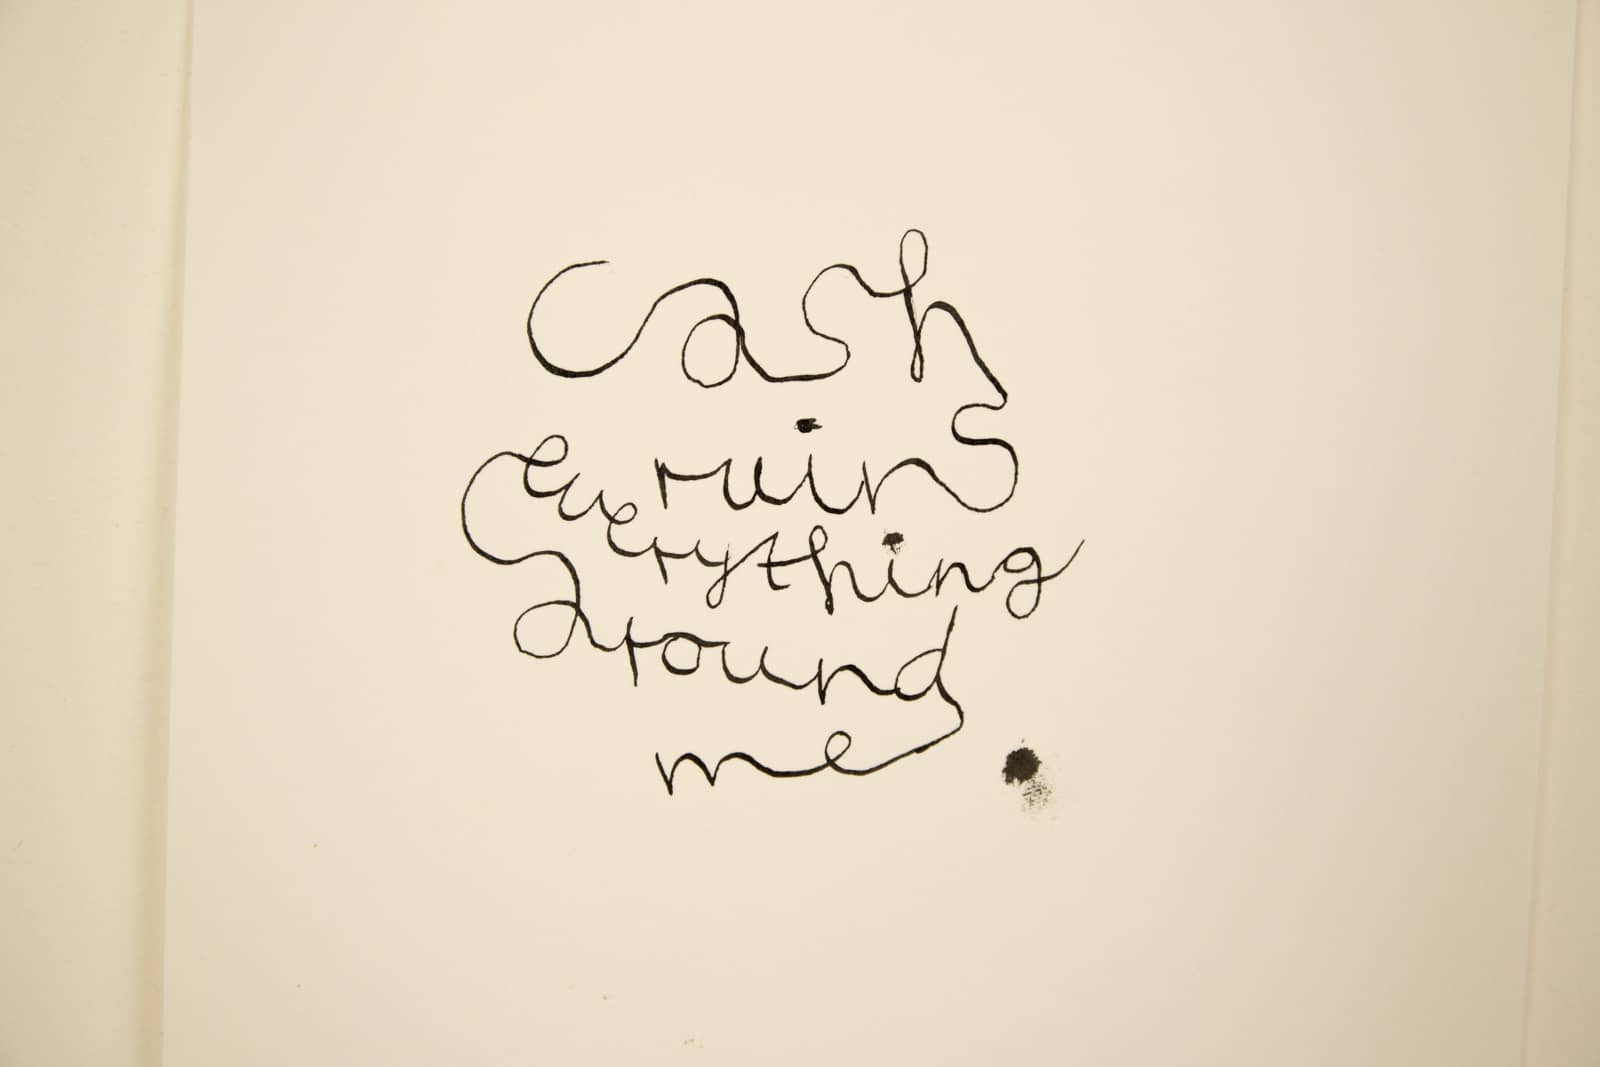 cash
ruins
everything
around
me